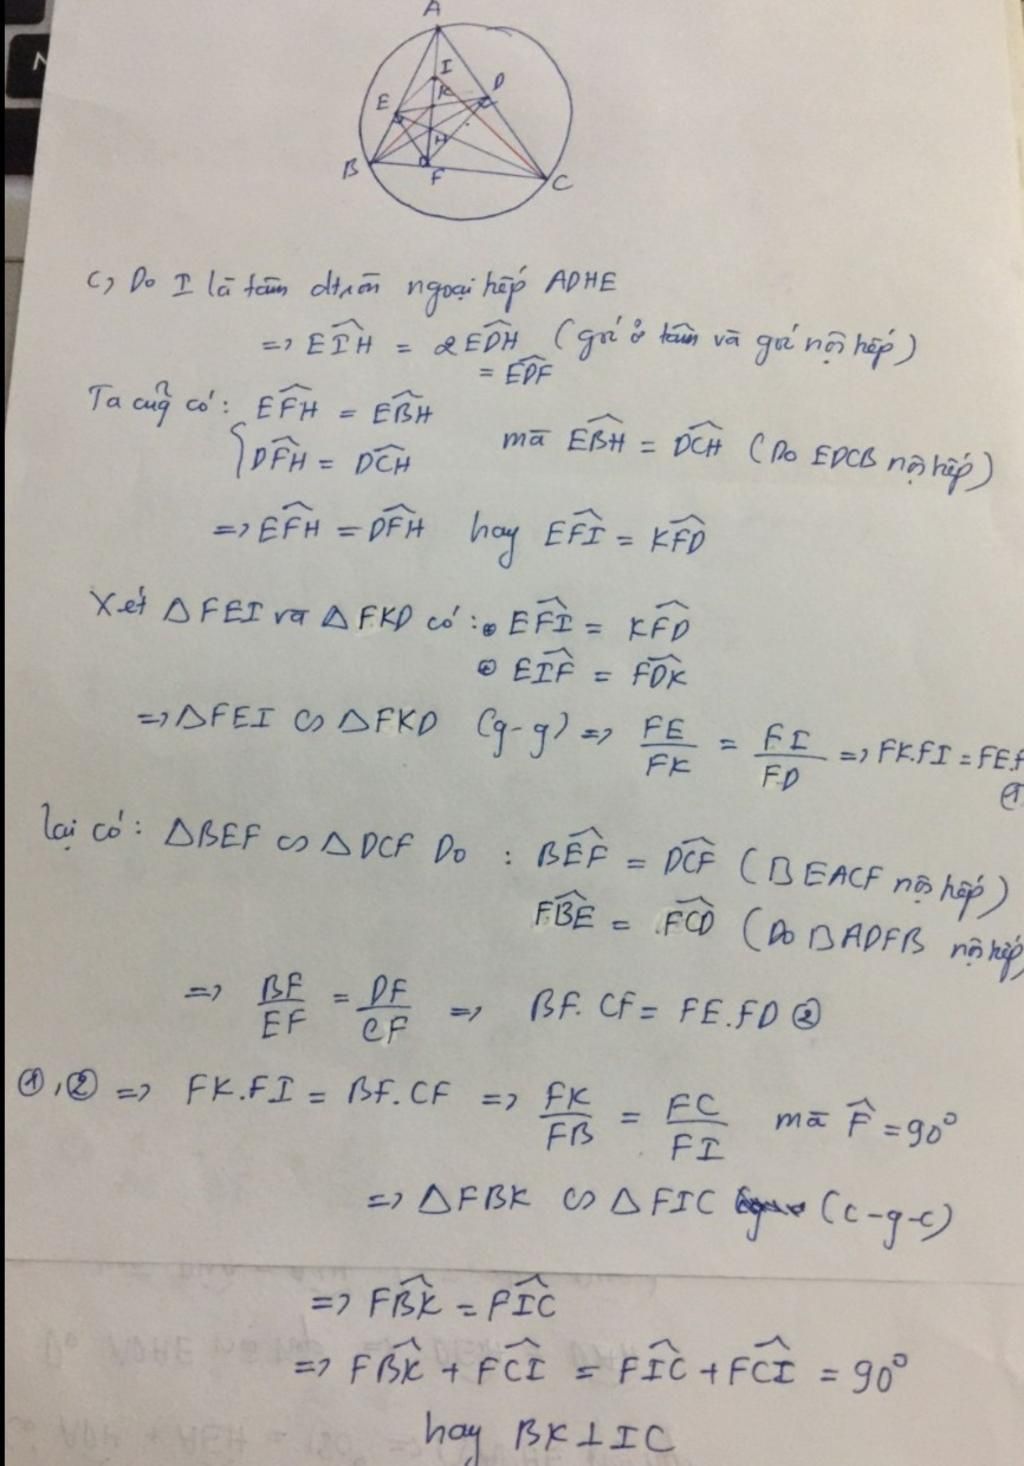 A
I
K
D
E
H
B
F
C
c, Do I là tâm đtròn ngoại tiếp ADHE
=> EIH = 2EDH (góc ở tâm và góc nội tiếp)
= EDF
Ta cũng có: EFH = EBH
DFH = DCH mà EBH = DCH (Do EDCB nội tiếp)
=> EFH = DFH hay EFI = KFD
Xét △FEI và △FKD có: EFI = KFD
EIF = FDK
=> △FEI ∽ △FKD (g-g) => FE/FK = FI/FD => FK.FI = FE.F
①
lại có: △BEF ∽ △DCF Do: BEF = DCF (BEACF nội tiếp)
FBE = FCD (Do BADFB nội tiếp
=> BF/EF = DF/CF => BF.CF = FE.FD ②
①,② => FK.FI = BF.CF => FK/FB = FC/FI mà F = 90°
=> △FBK ∽ △FIC (c-g-c)
=> FBK = FIC
=> FBK + FCI = FIC + FCI = 90°
hay BK⊥IC